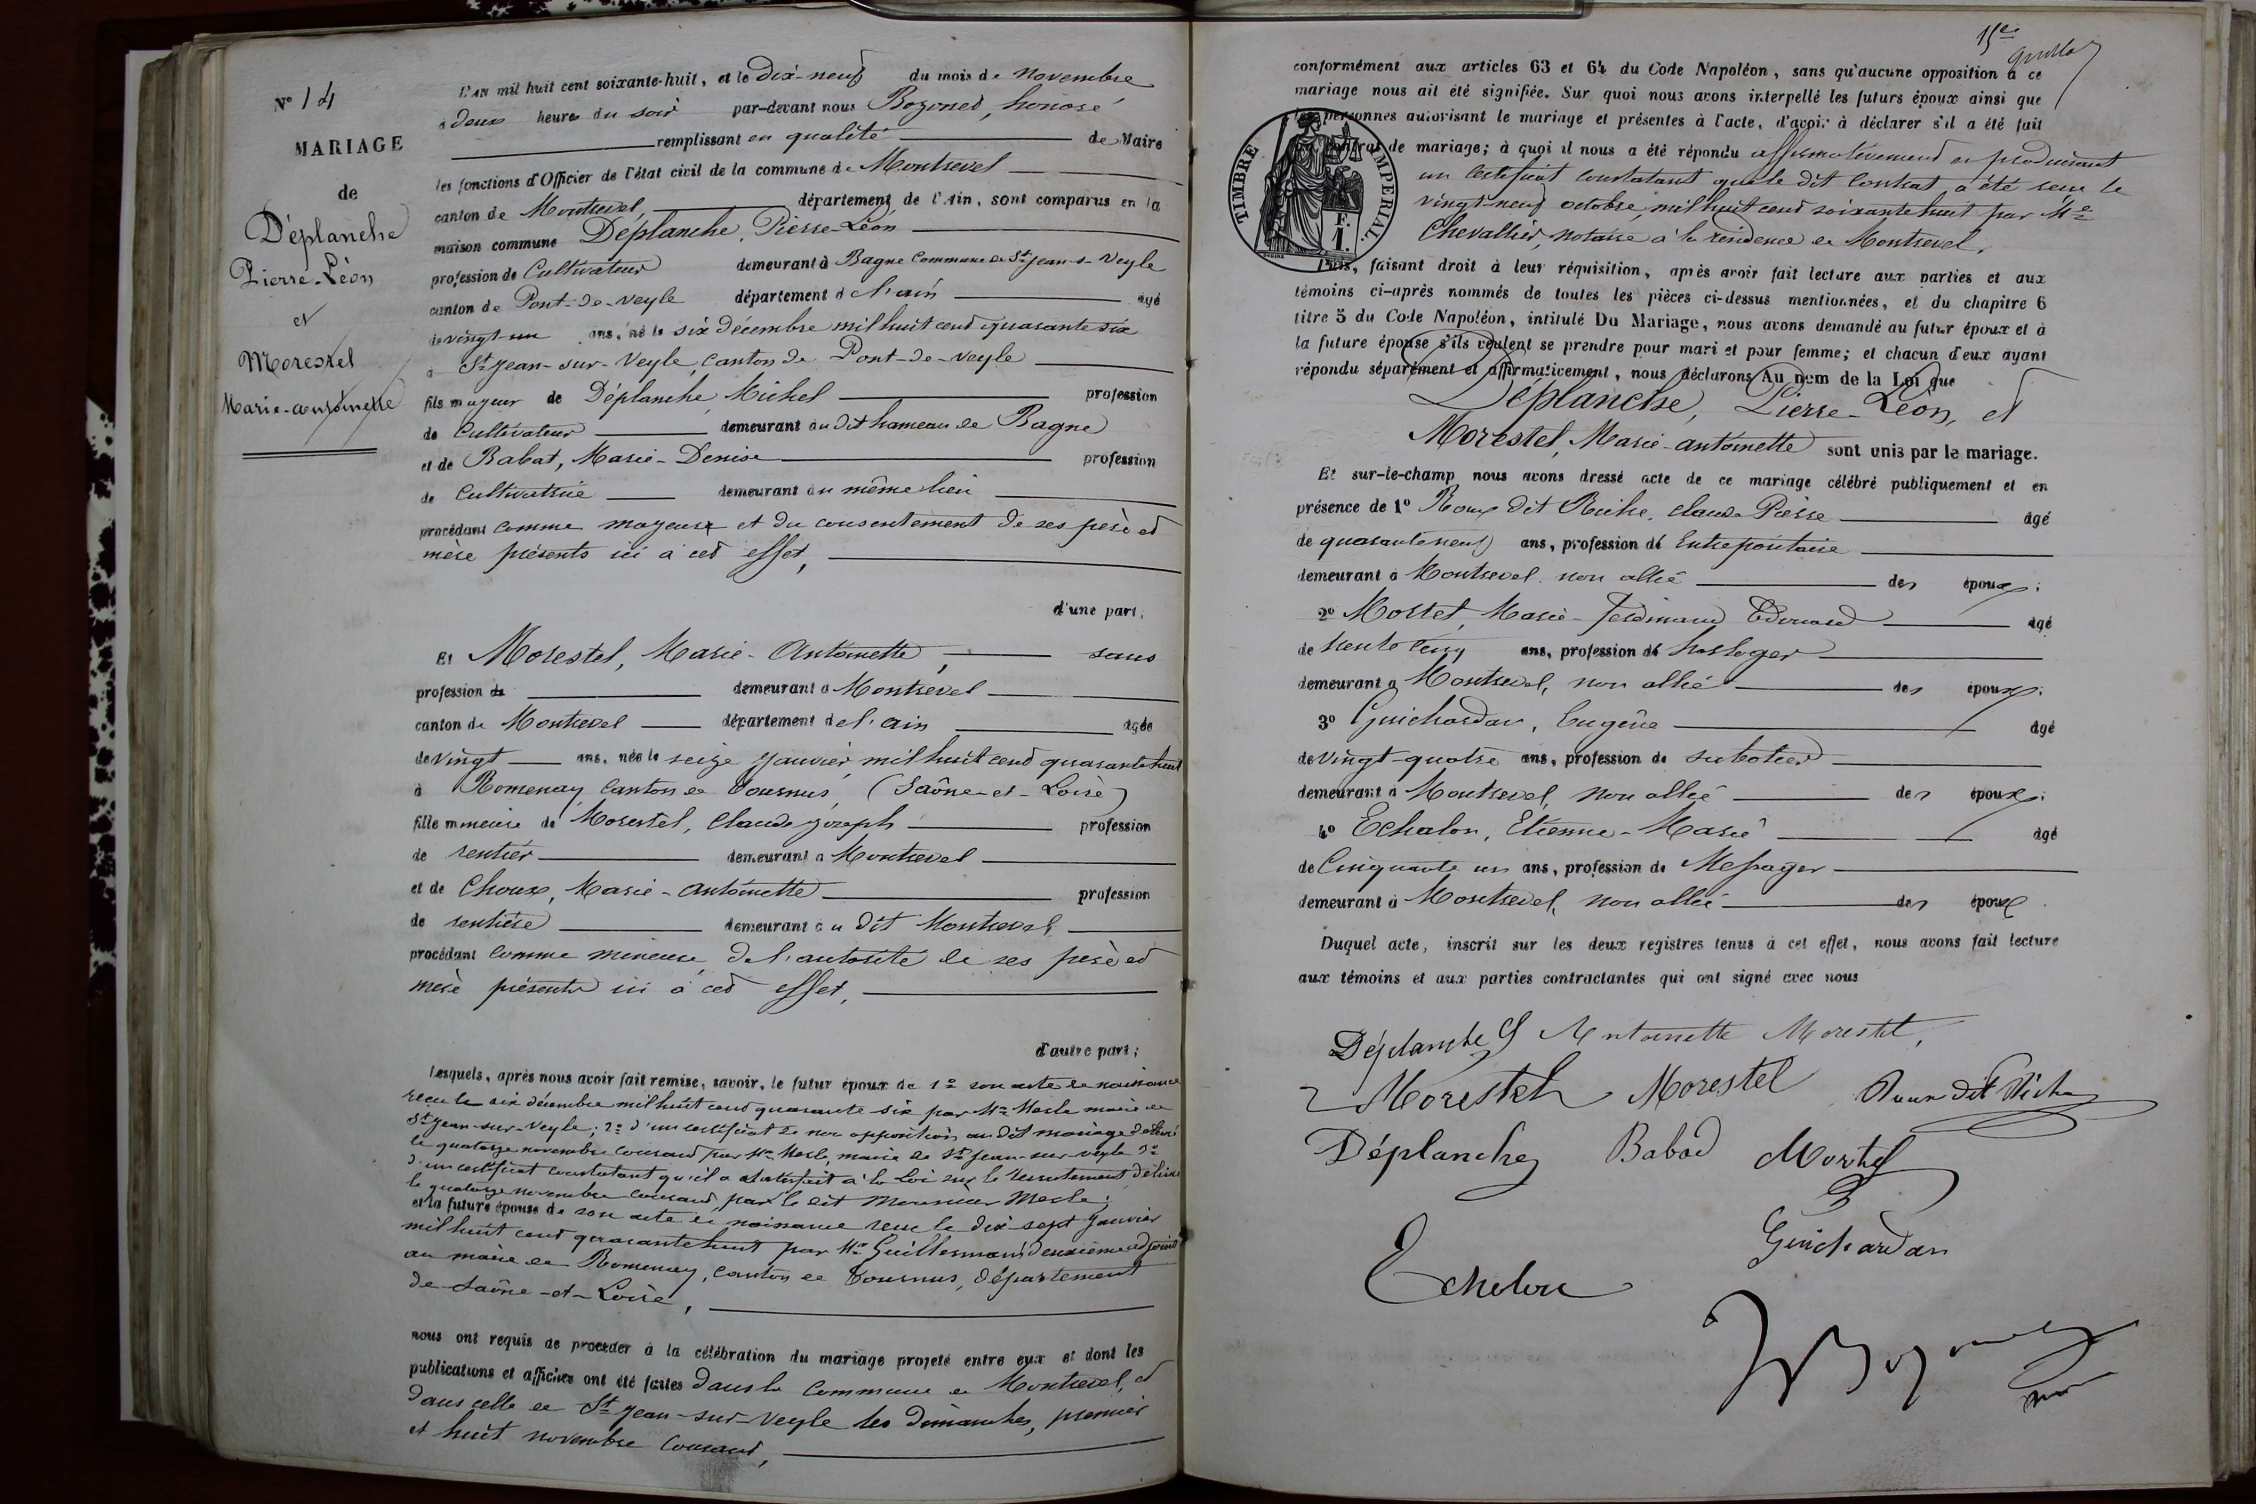 N° 14
MARIAGE
de
Déplanche
Pierre-Léon
et
Morestel
Marie-antoinette
L'AN mil huit cent soixante-huit, et le Dix-neuf du mois de novembre
à deux heures du soir par-devant nous Bozonet, honoré
remplissant en qualité de Maire
les fonctions d'Officier de l'état civil de la commune de Montrevel
canton de Montrevel, département de l'Ain, sont comparus en la
maison commune Déplanche, Pierre-Léon
profession de Cultivateur demeurant à Bagne Commune de St Jean-s-Veyle
canton de Pont-de-Veyle département de l'ain âgé
de vingt un ans, né le six décembre mil huit cent quarante six
à St Jean-sur-Veyle, canton de Pont-de-Veyle
fils majeur de Déplanche, Michel profession
de Cultivateur demeurant au dit hameau de Bagne
et de Babat, Marie-Denise profession
de Cultivatrice demeurant au même lieu
procédant comme majeur et du consentement de ses père et
mère présents ici à cet effet,
d'une part,
Et Morestel, Marie-Antoinette, sans
profession de demeurant à Montrevel
canton de Montrevel département de l'ain âgée
de vingt ans, née le seize Janvier, mil huit cent quarante huit
à Romenay, Canton de Tournus, (Saône-et-Loire)
fille mineure de Morestel, Claude Joseph profession
de rentier demeurant à Montrevel
et de Choux, Marie-antoinette profession
de rentière demeurant au dit Montrevel,
procédant comme mineure, de l'autorité de ses père et
mère présents ici à cet effet,
d'autre part;
Lesquels, après nous avoir fait remise, savoir, le futur époux de 1° son acte de naissance
reçu le six décembre mil huit cent quarante six par Mr Mesle maire de
St Jean-sur-Veyle; 2° d'un certificat de non opposition au dit mariage délivré
le quatorze novembre courant par Mr Mesle, maire de St Jean-sur-Veyle 3°
d'un certificat constatant qu'il a satisfait à la loi sur le recrutement délivré
le quatorze novembre courant, par le dit Monsieur Mesle;
et la future épouse de son acte de naissance reçu le dix-sept Janvier
mil huit cent quarante huit par Mr Guillermin, deuxième adjoint
au maire de Romenay, canton de Tournus, département
de Saône-et-Loire,
nous ont requis de procéder à la célébration du mariage projeté entre eux et dont les
publications et affiches ont été faites dans la Commune de Montrevel, et
dans celle de St Jean-sur-Veyle les dimanches, premier
et huit novembre courant,
15e
conformément aux articles 63 et 64 du Code Napoléon, sans qu'aucune opposition à ce
mariage nous ait été signifiée. Sur quoi nous avons interpellé les futurs époux ainsi que
les personnes autorisant le mariage et présentes à l'acte, d'avoir à déclarer s'il a été fait
contrat de mariage; à quoi il nous a été répondu affirmativement en produisant
un certificat constatant que le dit Contrat a été reçu le
vingt-neuf octobre, mil huit cent soixante huit par Me
Chevallier, notaire à la résidence de Montrevel.
TIMBRE IMPERIAL.
F.
1.
Puis, faisant droit à leur réquisition, après avoir fait lecture aux parties et aux
témoins ci-après nommés de toutes les pièces ci-dessus mentionnées, et du chapitre 6
titre 5 du Code Napoléon, intitulé Du Mariage, nous avons demandé au futur époux et à
la future épouse s'ils veulent se prendre pour mari et pour femme; et chacun d'eux ayant
répondu séparément et affirmativement, nous déclarons Au nom de la Loi que
Déplanche, Pierre-Léon, et
Morestel, Marie-antoinette sont unis par le mariage.
Et sur-le-champ nous avons dressé acte de ce mariage célébré publiquement et en
présence de 1° Roux dit Riche, Claude Pierre âgé
de quarante neuf ans, profession d' Entrepositaire
demeurant à Montrevel, non allié des époux;
2° Mortet, Marie-Ferdinand Edouard âgé
de trente cinq ans, profession d' horloger
demeurant à Montrevel, non allié des époux;
3° Guichardan, Eugène âgé
de vingt-quatre ans, profession de sabotier
demeurant à Montrevel, non allié des époux;
4° Echalon, Etienne-Marie âgé
de Cinquante un ans, profession de Messager
demeurant à Montrevel, non allié des époux.
Duquel acte, inscrit sur les deux registres tenus à cet effet, nous avons fait lecture
aux témoins et aux parties contractantes qui ont signé avec nous
Déplanche Antoinette Morestel,
Morestel Morestel Roux dit Riche
Déplanche Babad Mortet
Guichardan
Echalon